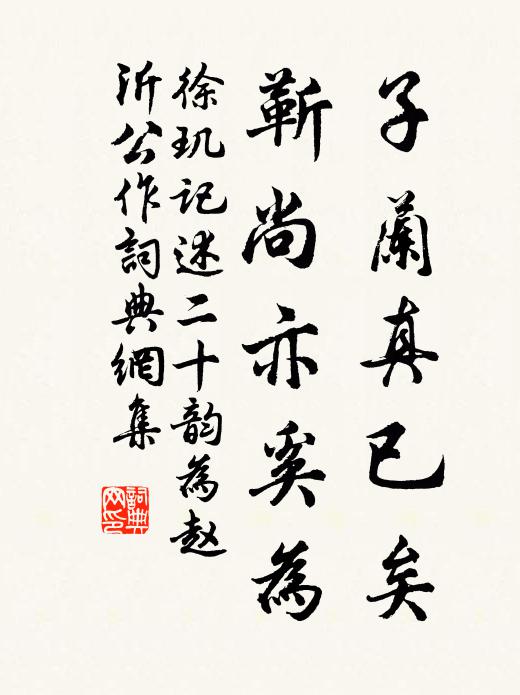 子蘭真已矣
靳尚亦奚為
徐玑記述二十韵為赵
沂公作詞典網集
詞典网印